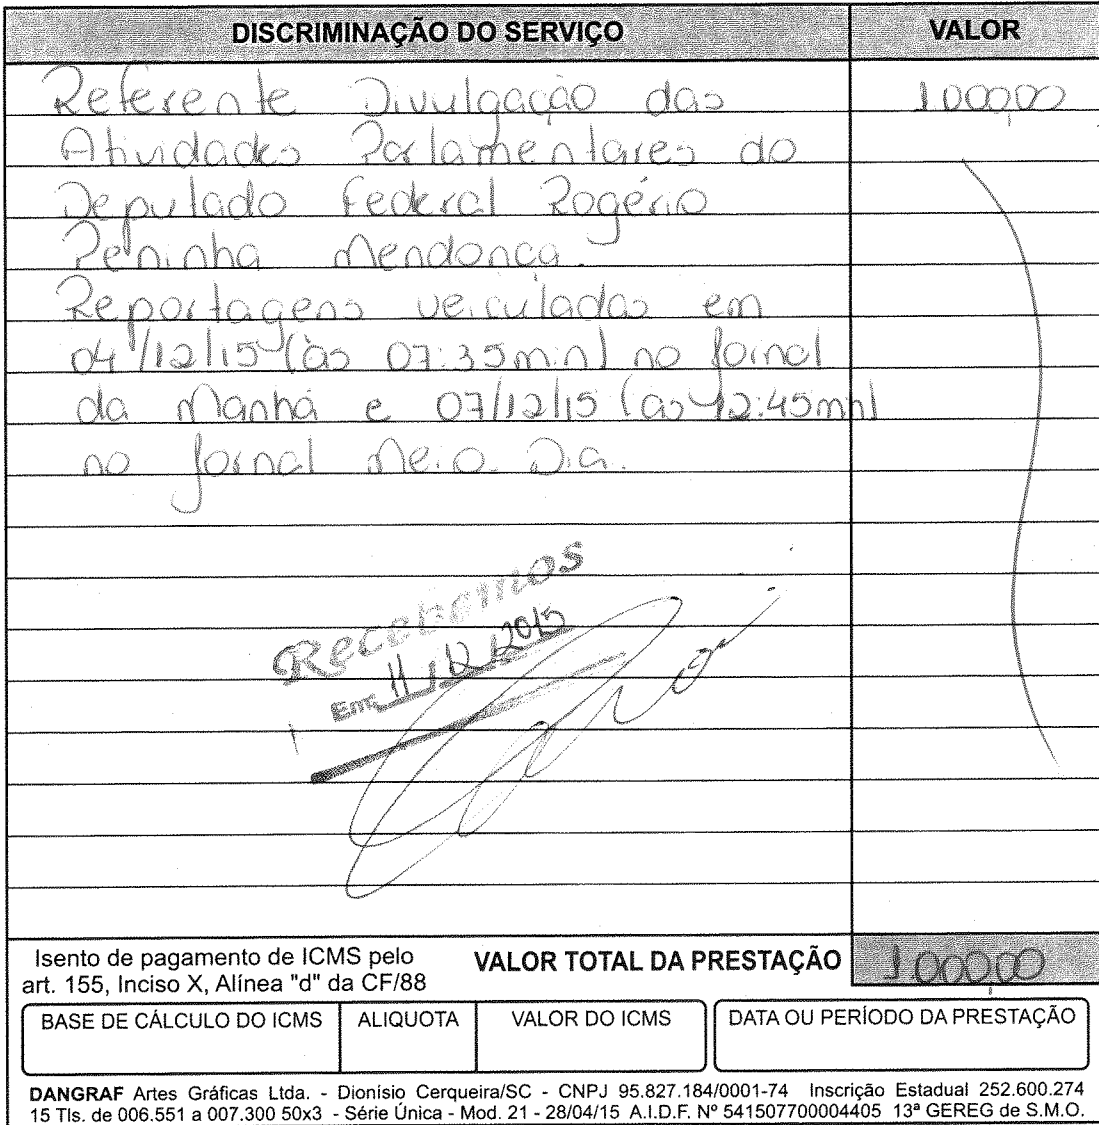 DISCRIMINAÇÃO DO SERVIÇO VALOR
Referente Divulgação das 1000,00
Atividades Parlamentares do
Deputado Federal Rogério
Peninha Mendonça.
Reportagens veiculadas em
04/12/15 (às 07:35min) no Jornal
da Manhã e 07/12/15 (às 12:45min)
no Jornal Meio Dia.
Recebemos
Em, 11/12/2015
Isento de pagamento de ICMS pelo
art. 155, Inciso X, Alínea "d" da CF/88
VALOR TOTAL DA PRESTAÇÃO 1000,00
BASE DE CÁLCULO DO ICMS ALIQUOTA VALOR DO ICMS DATA OU PERÍODO DA PRESTAÇÃO
DANGRAF Artes Gráficas Ltda. - Dionísio Cerqueira/SC - CNPJ 95.827.184/0001-74 Inscrição Estadual 252.600.274
15 Tls. de 006.551 a 007.300 50x3 - Série Única - Mod. 21 - 28/04/15 A.I.D.F. Nº 541507700004405 13ª GEREG de S.M.O.